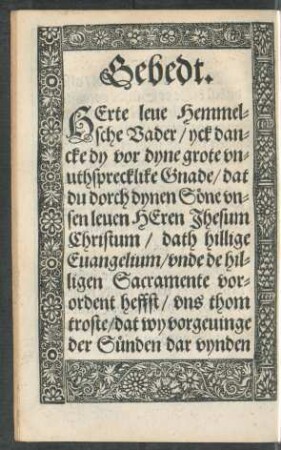 Gebedt.
HErte leue Hemmel-
sche Vader / yck dan-
cke dy vor dyne grote vn-
uthsprecklike Gnade / dat
du dorch dynen Söne vn-
sen leuen HEren Jhesum
Christum / dath hillige
Euangelium / vnde de hil-
ligen Sacramente vor-
ordent heffst / vns thom
troste / dat wy vorgeuinge
der Sünden dar vynden